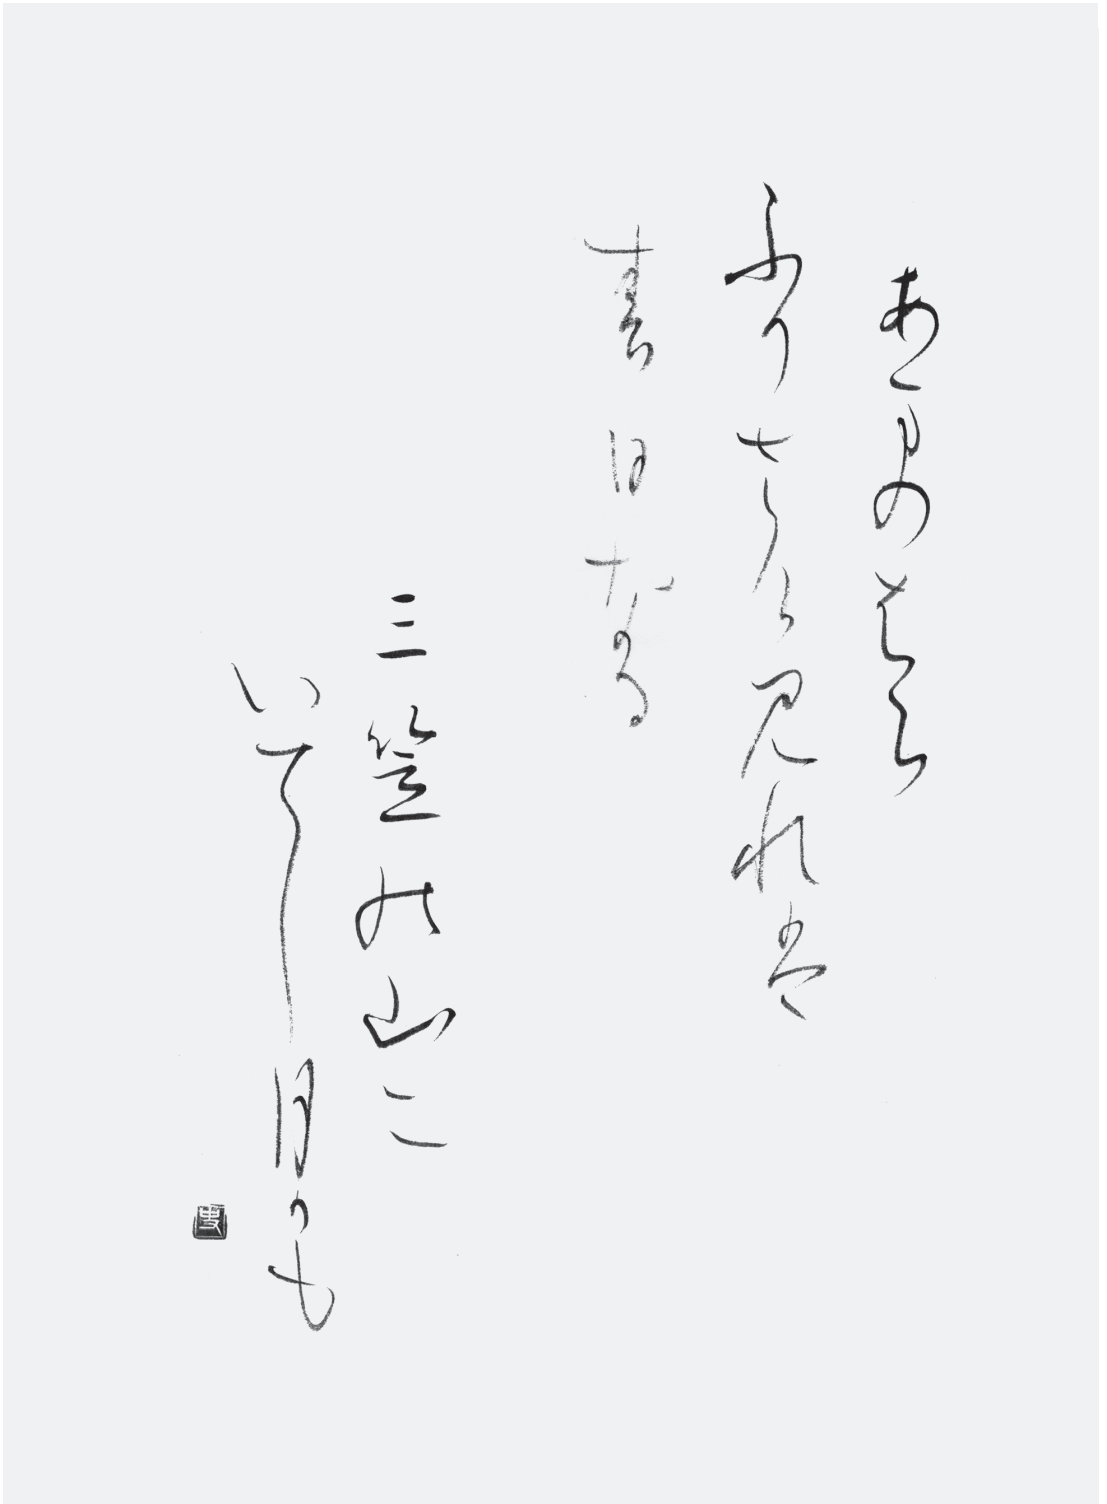 あまのはら
ふりさけ見れは
春日なる
三笠の山に
いてし月かも